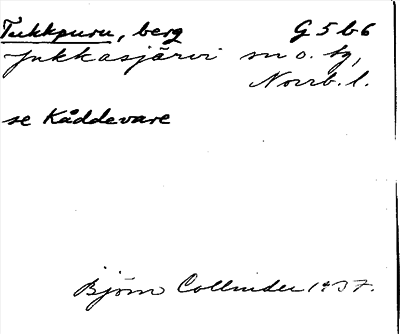 Tukkpuru, berg G 5 b 6
Jukkasjärvi sn o. tg,
Norrb. l.
se Kåddevare
Björn Collinder 1937.